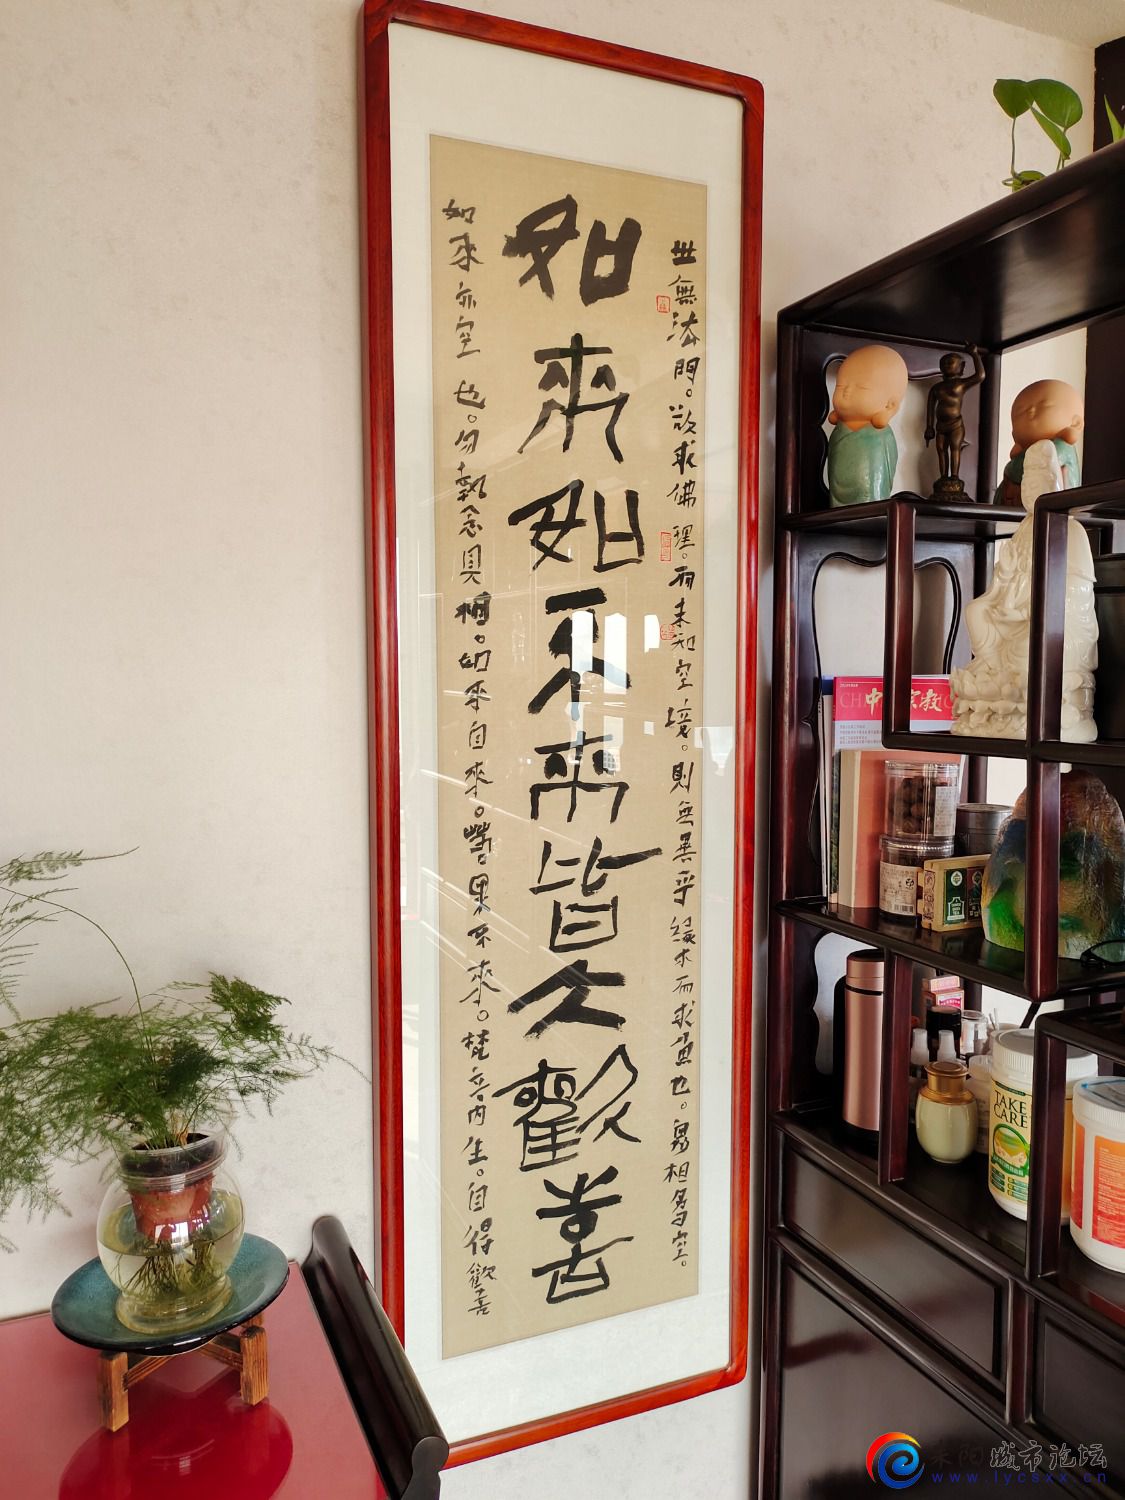 世無法門。欲求佛理。而未知空境。則無異乎緣木而求魚也。易相多空。
如來如不來皆大歡喜
如來亦空也。勿執念具相。如來自來。嘗果不來。梵音内生。自得歡喜
中 宗教
TAKE
CARE
耒阳城市论坛
www.lycsxx.cn